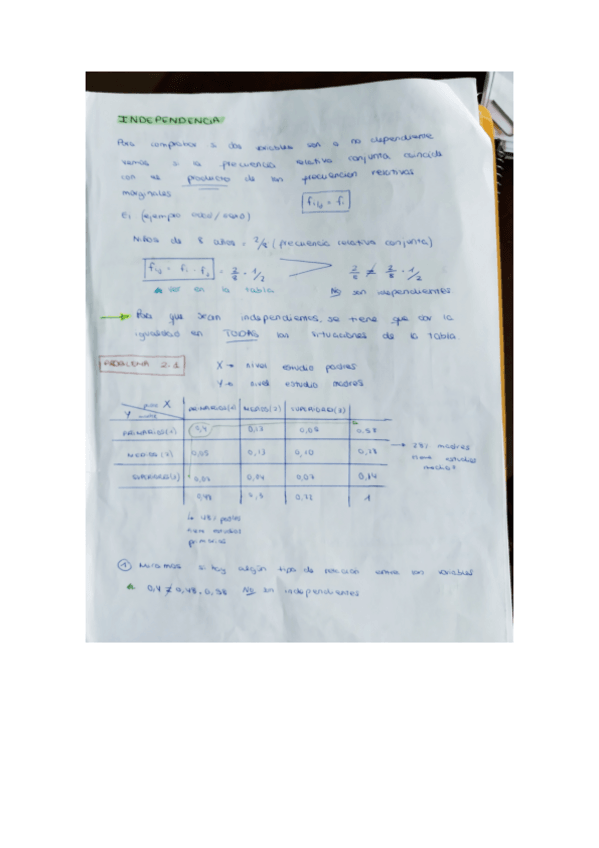 INDEPENDENCIA
Para comprobar si dos variables son o no dependientes
vemos si la frecuencia relativa conjunta coincide
con el producto de las frecuencias relativas
marginales.
fij = fi
Ej (ejemplo
Niños de 8 años = 2/8 (frecuencia relativa conjunta)
fij = fi · fj = 2/8 · 1/2
2/8 ≠ 2/8 · 1/2
ver en la tabla
No son independientes
Para que sean independientes, se tiene que dar la
igualdad en TODAS las situaciones de la tabla.
PROBLEMA 2.1
X → nivel estudio padres
Y → nivel estudio madres
X
Y
PRIMARIOS(1) MEDIOS(2) SUPERIORES(3)
PRIMARIOS(1) 0,4 0,13 0,05 0,58
MEDIOS(2) 0,05 0,13 0,10 0,28
SUPERIORES(3) 0,03 0,04 0,07 0,14
0,48 0,3 0,22 1
→ 28% madres
tiene estudios
medios
↳ 48% padres
tienen estudios
primarios
① Miramos si hay algún tipo de relación entre las variables
0,4 ≠ 0,48 · 0,58 No son independientes